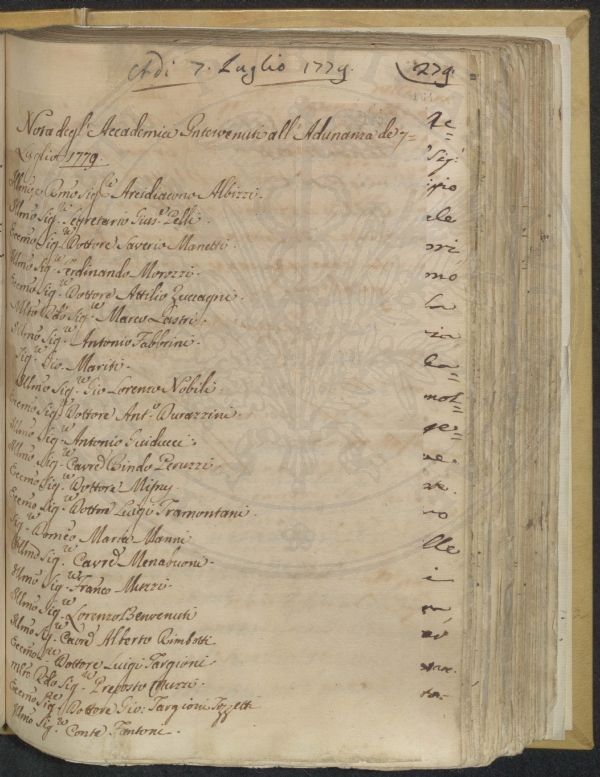 Adi 7. Luglio 1779.
279.
Nota degl' Accademici Intervenuti all' Adunanza de 7=
Luglio 1779.
Illmo, e Rmo Sigre Arcidiacono Albizzi.
Illmo Sigre Segretario Giusp Pelli.
Eccmo Sigre Dottore Saverio Manetti.
Illmo Sigre Ferdinando Morozzi.
Eccmo Sigre Dottore Attilio Zuccagni.
Mlto Rdo Sigre Marco Lastri.
Illmo Sigre Antonio Fabbrini.
Sigre Gio. Mariti.
Illmo Sigre Gio Lorenzo Nobili.
Eccmo Sigre Dottore Anto Durazzini.
Illmo Sigre Antonio Guiducci.
Illmo Sigre Cavre Bindo Peruzzi.
Eccmo Sigre Dottore Mesny.
Eccmo Sigre Dottore Luigi Tramontani.
Sigre Domco Maria Manni
Illmo Sigre Cavre Menabuoni.
Illmo Sigre Franco
Illmo Sigre Lorenzo Benvenuti
Illmo Sigre Cavre Alberto Rimbotti.
Eccmo Sigre Dottore Luigi Targioni.
Mlto Rdo Sigre Preposto
Eccmo Sigre Dottore Gio: Targioni Tozzetti
Illmo Sigre Conte Fantoni.